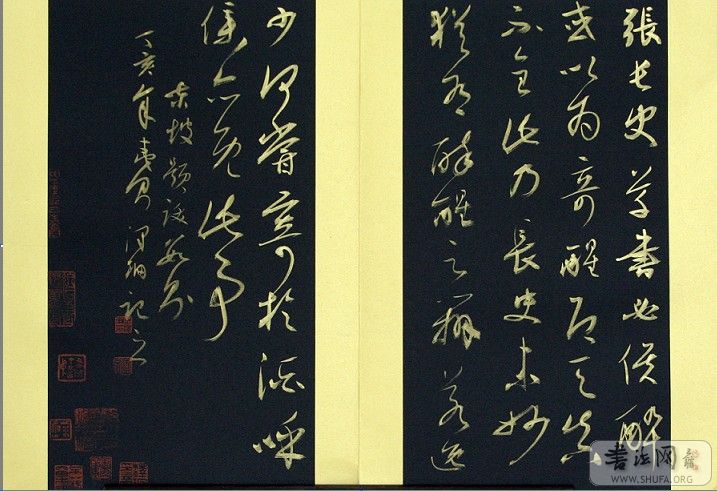 張長史草書必俟醉
或以為奇醒即天真
不全此乃長史未妙
猶有醉醒之辨若逸
少何嘗寄於酒呼
僕亦免此事
東坡題跋數則
丁亥年夷則記之
书法网
WWW.SHUFA.ORG